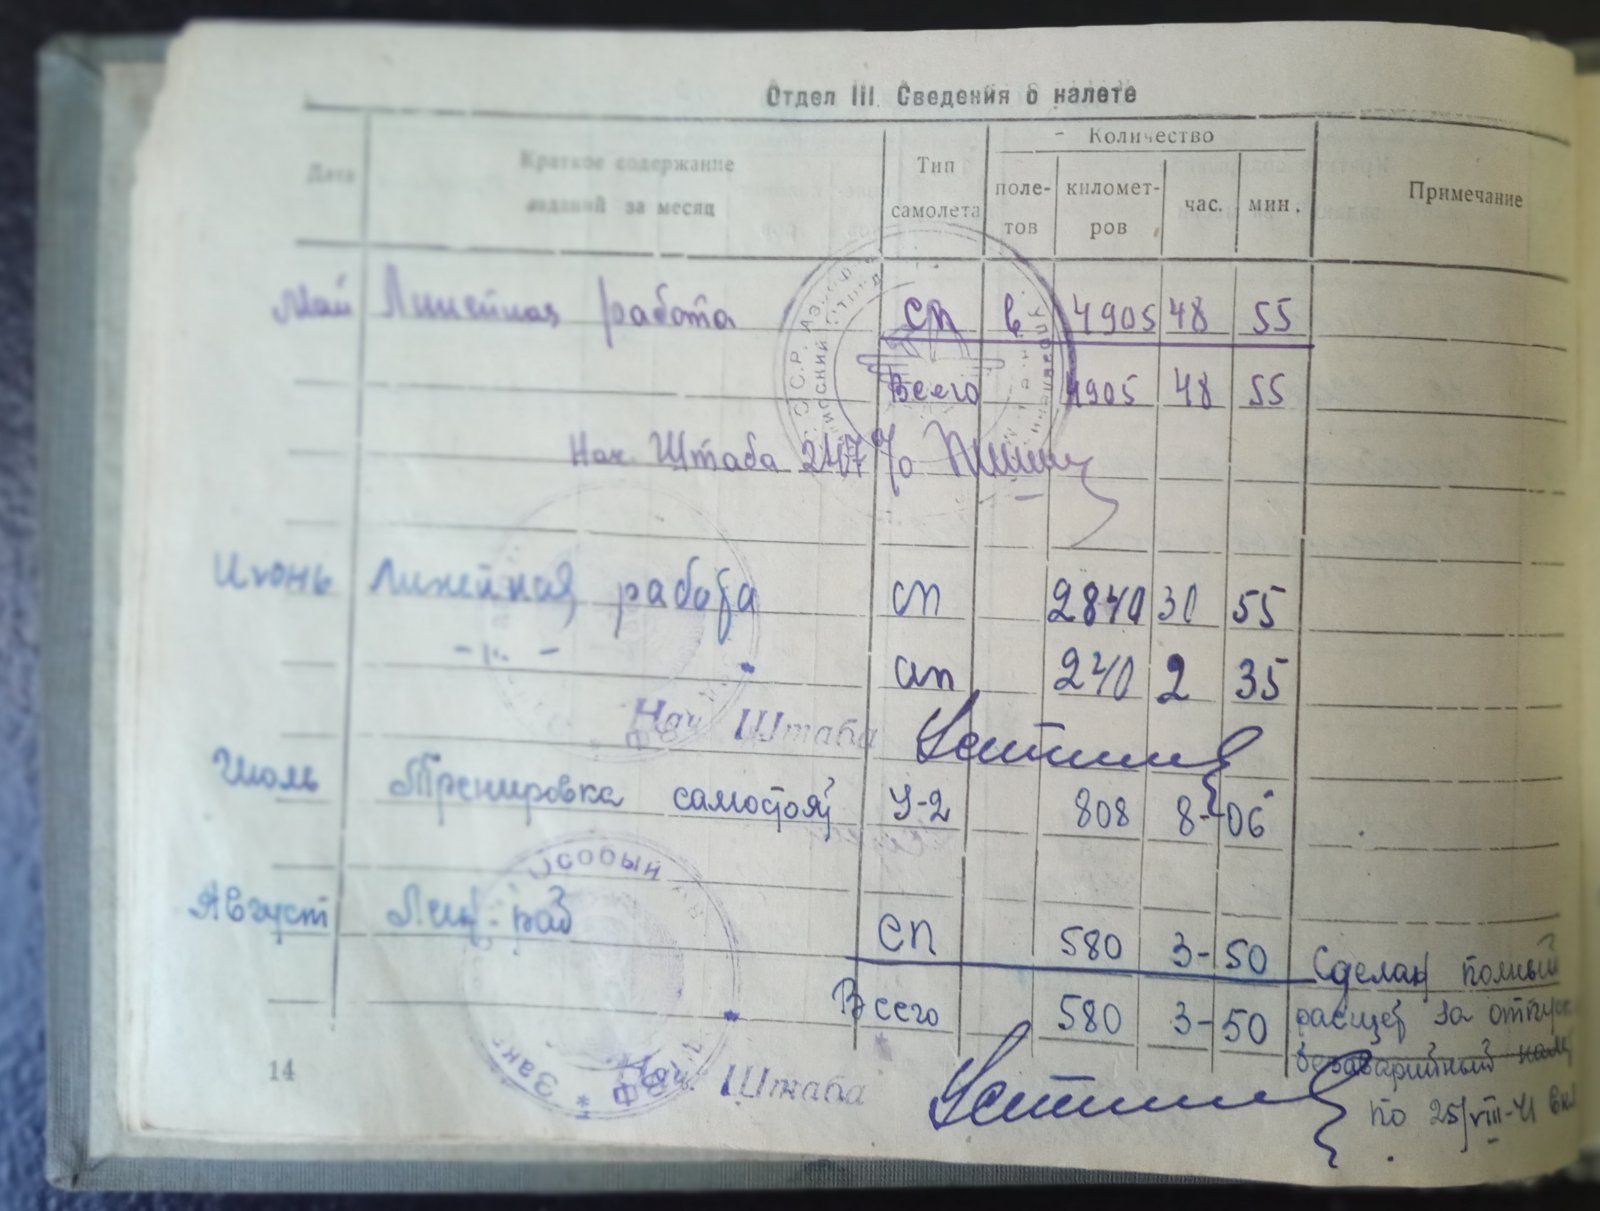 Отдел III. Сведения о налете
Дата
Краткое содержание
заданий за месяц
Тип
самолета
Количество
поле-
тов
километ-
ров
час.
мин.
Примечание
Май Линейная работа СП 4905 48 55
Всего 4905 48 55
Нач. Штаба
Июнь Линейная работа СП 2840 30 55
-"- 240 2 35
Нач. Штаба
Июль Тренировка самостоят У-2 808 8-06
Август Лин. раб СП 580 3-50
Всего 580 3-50
Сделан полный
расщет за отпуск
безаварийный
по 25/VIII-41
Нач. Штаба
Особый
14